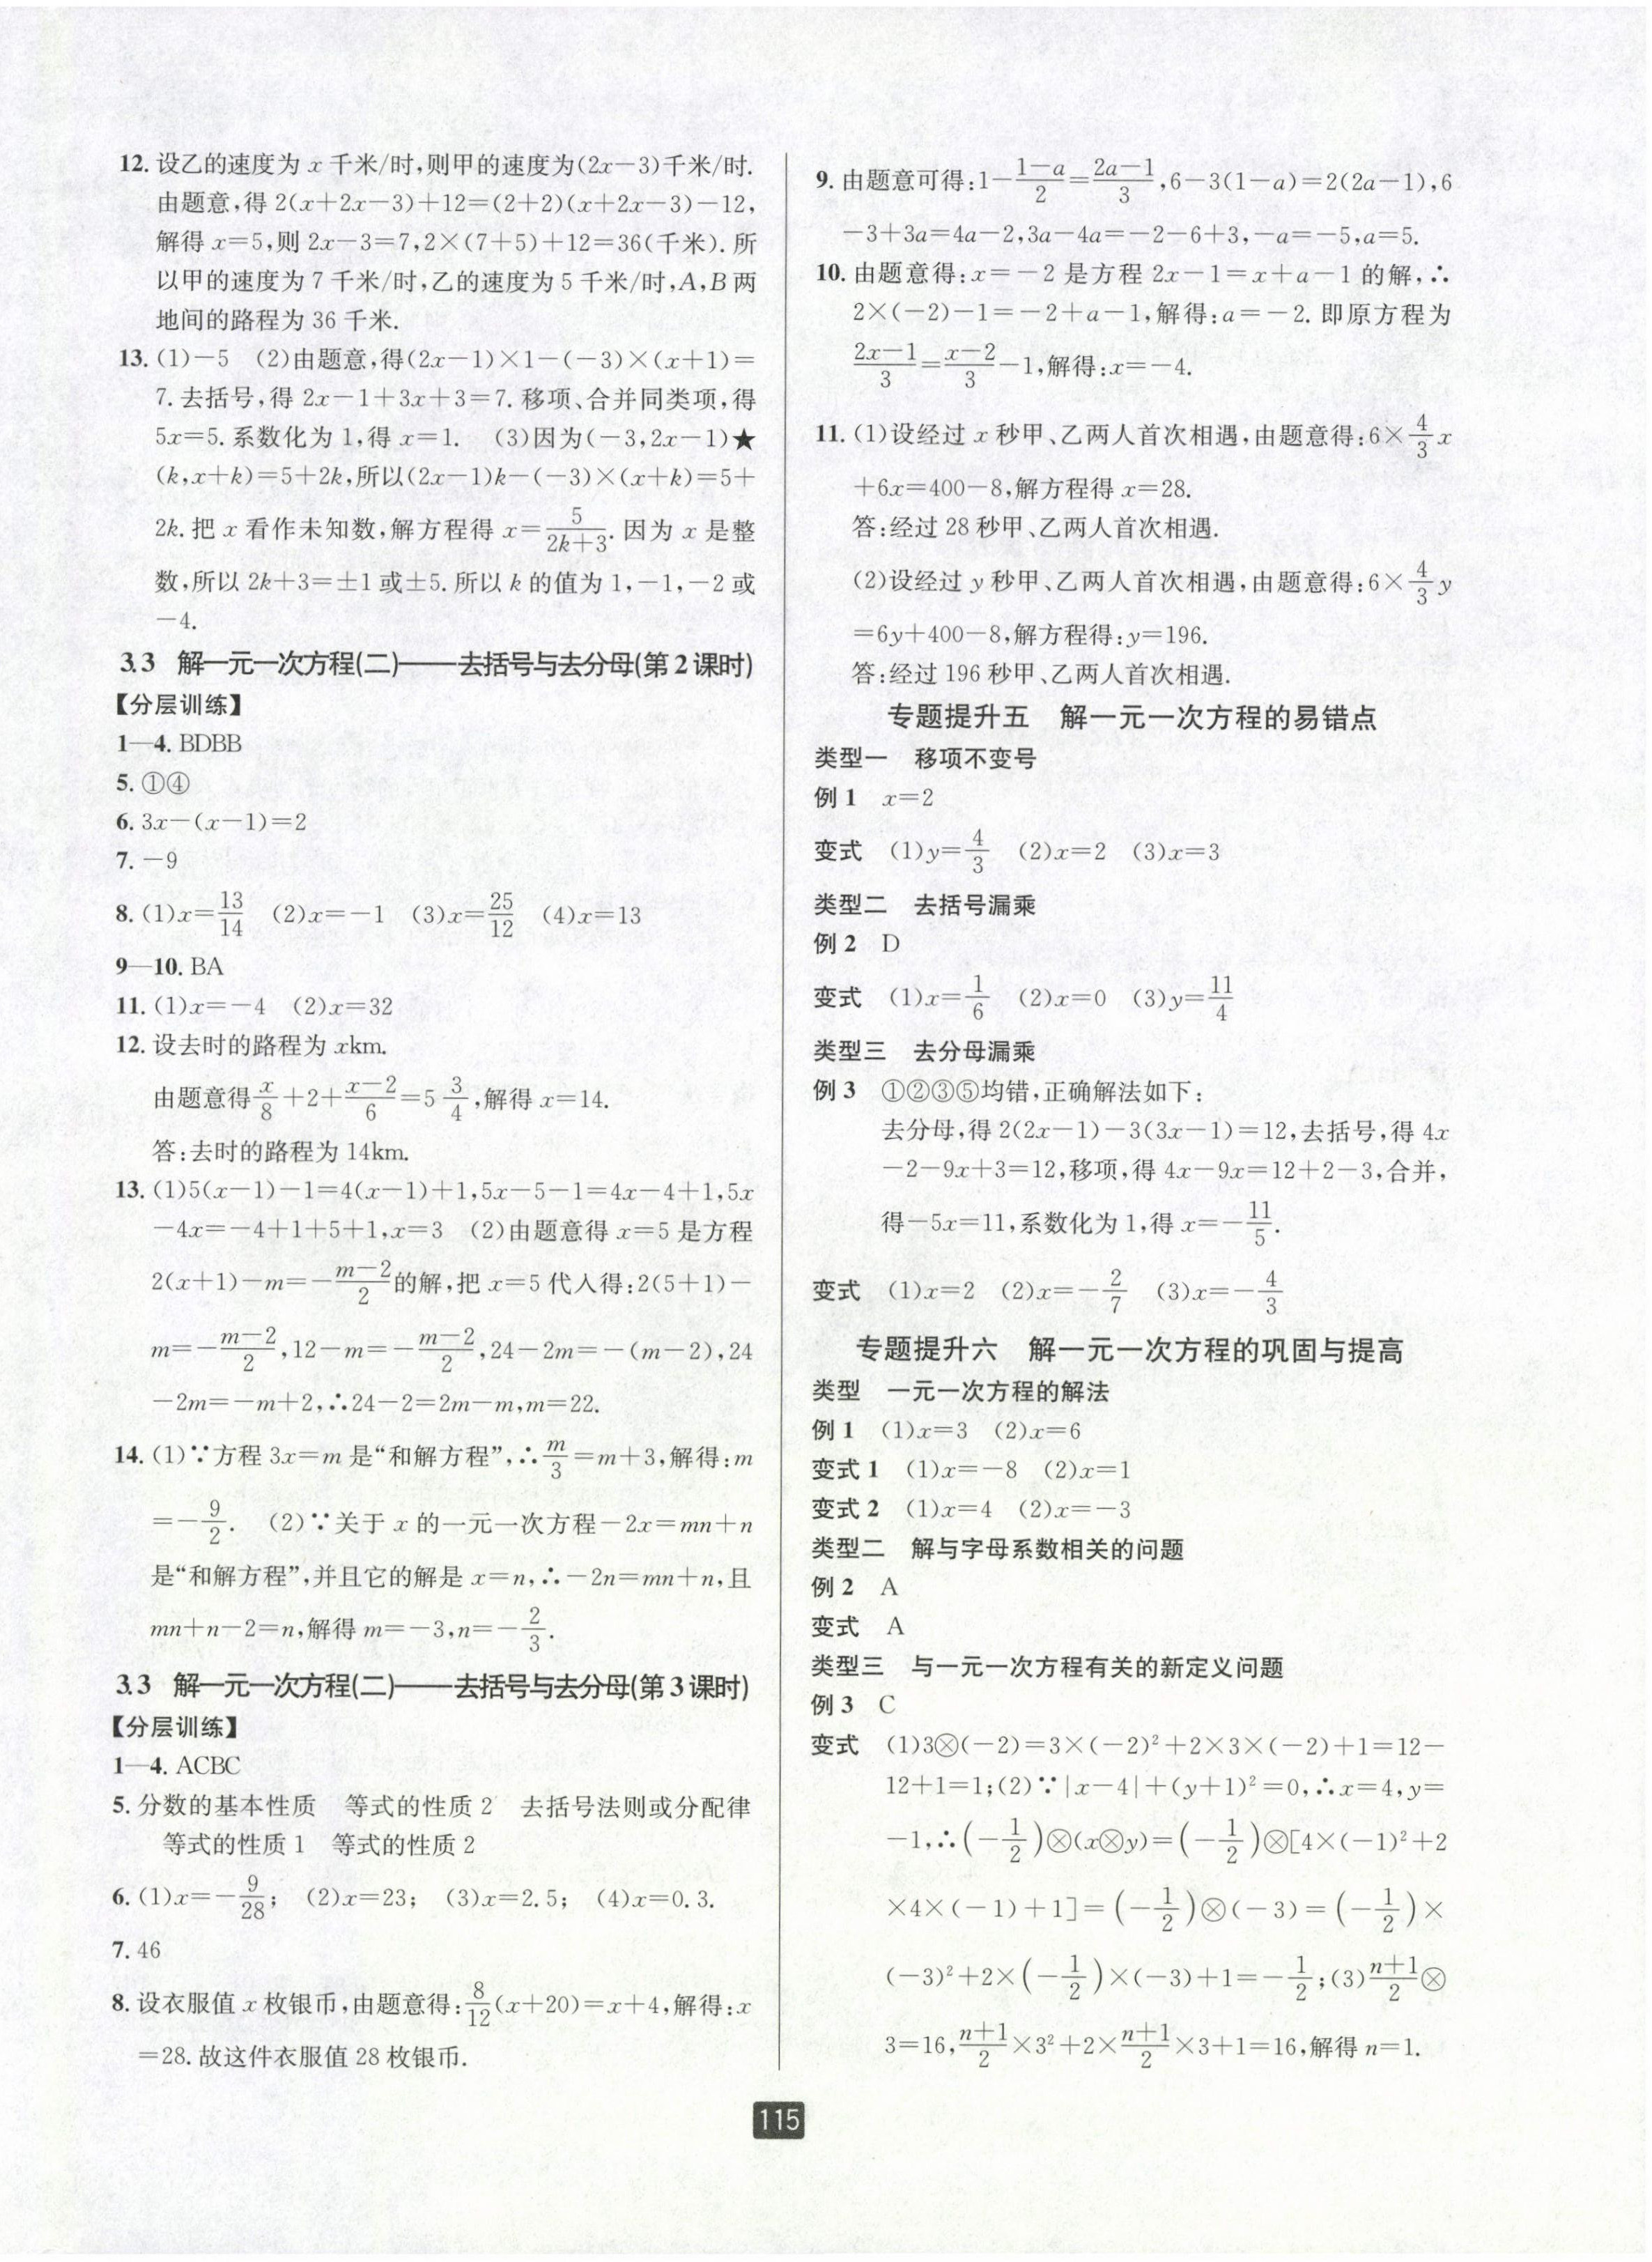 12. 设乙的速度为 x 千米/时,则甲的速度为(2x-3)千米/时.
由题意,得 2(x+2x-3)+12=(2+2)(x+2x-3)-12,
解得 x=5,则 2x-3=7,2×(7+5)+12=36(千米). 所
以甲的速度为 7 千米/时,乙的速度为 5 千米/时,A,B 两
地间的路程为 36 千米.
13. (1)-5 (2)由题意,得(2x-1)×1-(-3)×(x+1)=
7. 去括号,得 2x-1+3x+3=7. 移项、合并同类项,得
5x=5. 系数化为 1,得 x=1. (3)因为(-3,2x-1)★
(k,x+k)=5+2k,所以(2x-1)k-(-3)×(x+k)=5+
2k. 把 x 看作未知数,解方程得 x=5/(2k+3). 因为 x 是整
数,所以 2k+3=±1 或±5. 所以 k 的值为 1,-1,-2 或
-4.
3.3 解一元一次方程(二)——去括号与去分母(第 2 课时)
【分层训练】
1—4. BDBB
5. ①④
6. 3x-(x-1)=2
7. -9
8. (1)x=13/14 (2)x=-1 (3)x=25/12 (4)x=13
9—10. BA
11. (1)x=-4 (2)x=32
12. 设去时的路程为 xkm.
由题意得 x/8+2+(x-2)/6=5 3/4,解得 x=14.
答:去时的路程为 14km.
13. (1)5(x-1)-1=4(x-1)+1,5x-5-1=4x-4+1,5x
-4x=-4+1+5+1,x=3 (2)由题意得 x=5 是方程
2(x+1)-m=-(m-2)/2 的解,把 x=5 代入得:2(5+1)-
m=-(m-2)/2,12-m=-(m-2)/2,24-2m=-(m-2),24
-2m=-m+2,∴24-2=2m-m,m=22.
14. (1)∵方程 3x=m 是“和解方程”,∴m/3=m+3,解得:m
=-9/2. (2)∵关于 x 的一元一次方程-2x=mn+n
是“和解方程”,并且它的解是 x=n,∴-2n=mn+n,且
mn+n-2=n,解得 m=-3,n=-2/3.
3.3 解一元一次方程(二)——去括号与去分母(第 3 课时)
【分层训练】
1—4. ACBC
5. 分数的基本性质 等式的性质 2 去括号法则或分配律
等式的性质 1 等式的性质 2
6. (1)x=-9/28; (2)x=23; (3)x=2.5; (4)x=0.3.
7. 46
8. 设衣服值 x 枚银币,由题意得:8/12(x+20)=x+4,解得:x
=28. 故这件衣服值 28 枚银币.
9. 由题意可得:1-(1-a)/2=(2a-1)/3,6-3(1-a)=2(2a-1),6
-3+3a=4a-2,3a-4a=-2-6+3,-a=-5,a=5.
10. 由题意得:x=-2 是方程 2x-1=x+a-1 的解,∴
2×(-2)-1=-2+a-1,解得:a=-2. 即原方程为
(2x-1)/3=(x-2)/3-1,解得:x=-4.
11. (1)设经过 x 秒甲、乙两人首次相遇,由题意得:6×4/3x
+6x=400-8,解方程得 x=28.
答:经过 28 秒甲、乙两人首次相遇.
(2)设经过 y 秒甲、乙两人首次相遇,由题意得:6×4/3y
=6y+400-8,解方程得:y=196.
答:经过 196 秒甲、乙两人首次相遇.
专题提升五 解一元一次方程的易错点
类型一 移项不变号
例 1 x=2
变式 (1)y=4/3 (2)x=2 (3)x=3
类型二 去括号漏乘
例 2 D
变式 (1)x=1/6 (2)x=0 (3)y=11/4
类型三 去分母漏乘
例 3 ①②③⑤均错,正确解法如下:
去分母,得 2(2x-1)-3(3x-1)=12,去括号,得 4x
-2-9x+3=12,移项,得 4x-9x=12+2-3,合并,
得-5x=11,系数化为 1,得 x=-11/5.
变式 (1)x=2 (2)x=-2/7 (3)x=-4/3
专题提升六 解一元一次方程的巩固与提高
类型 一元一次方程的解法
例 1 (1)x=3 (2)x=6
变式 1 (1)x=-8 (2)x=1
变式 2 (1)x=4 (2)x=-3
类型二 解与字母系数相关的问题
例 2 A
变式 A
类型三 与一元一次方程有关的新定义问题
例 3 C
变式 (1)3⊗(-2)=3×(-2)²+2×3×(-2)+1=12-
12+1=1;(2)∵|x-4|+(y+1)²=0,∴x=4,y=
-1,∴(-1/2)⊗(x⊗y)=(-1/2)⊗[4×(-1)²+2
×4×(-1)+1]=(-1/2)⊗(-3)=(-1/2)×
(-3)²+2×(-1/2)×(-3)+1=-1/2;(3)(n+1)/2⊗
3=16,(n+1)/2×3²+2×(n+1)/2×3+1=16,解得 n=1.
115